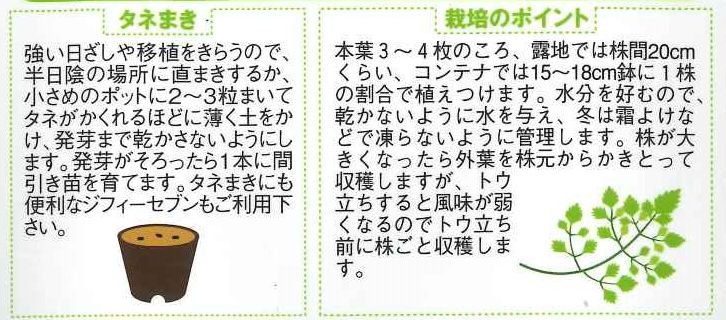 タネまき
強い日ざしや移植をきらうので、
半日陰の場所に直まきするか、
小さめのポットに2〜3粒まいて
タネがかくれるほどに薄く土をか
け、発芽まで乾かさないようにし
ます。発芽がそろったら1本に間
引き苗を育てます。タネまきにも
便利なジフィーセブンもご利用下
さい。
栽培のポイント
本葉3〜4枚のころ、露地では株間20cm
くらい、コンテナでは15〜18cm鉢に1株
の割合で植えつけます。水分を好むので、
乾かないように水を与え、冬は霜よけな
どで凍らないように管理します。株が大
きくなったら外葉を株元からかきとって
収穫しますが、トウ
立ちすると風味が弱
くなるのでトウ立ち
前に株ごと収穫しま
す。